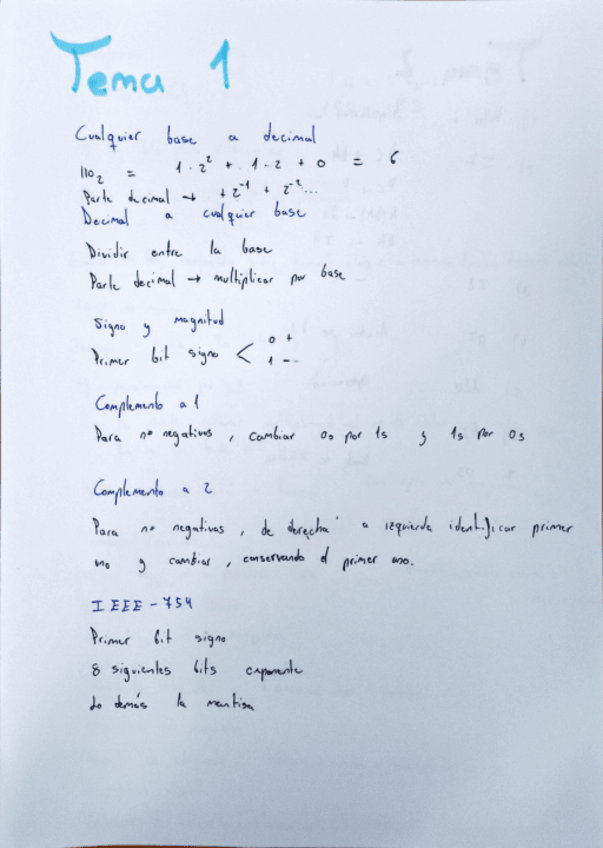 Tema 1
Cualquier base a decimal
110₂ = 1·2² + 1·2 + 0 = 6
Parte decimal → +2⁻¹ + 2⁻²...
Decimal a cualquier base
Dividir entre la base
Parte decimal → multiplicar por base
Signo y magnitud
Primer bit signo < 0 +
1 -
Complemento a 1
Para nº negativos, cambiar 0s por 1s y 1s por 0s
Complemento a 2
Para nº negativos, de derecha a izquierda identificar primer
uno y cambiar, conservando el primer uno.
IEEE-754
Primer bit signo
8 siguientes bits exponente
Lo demás la mantisa